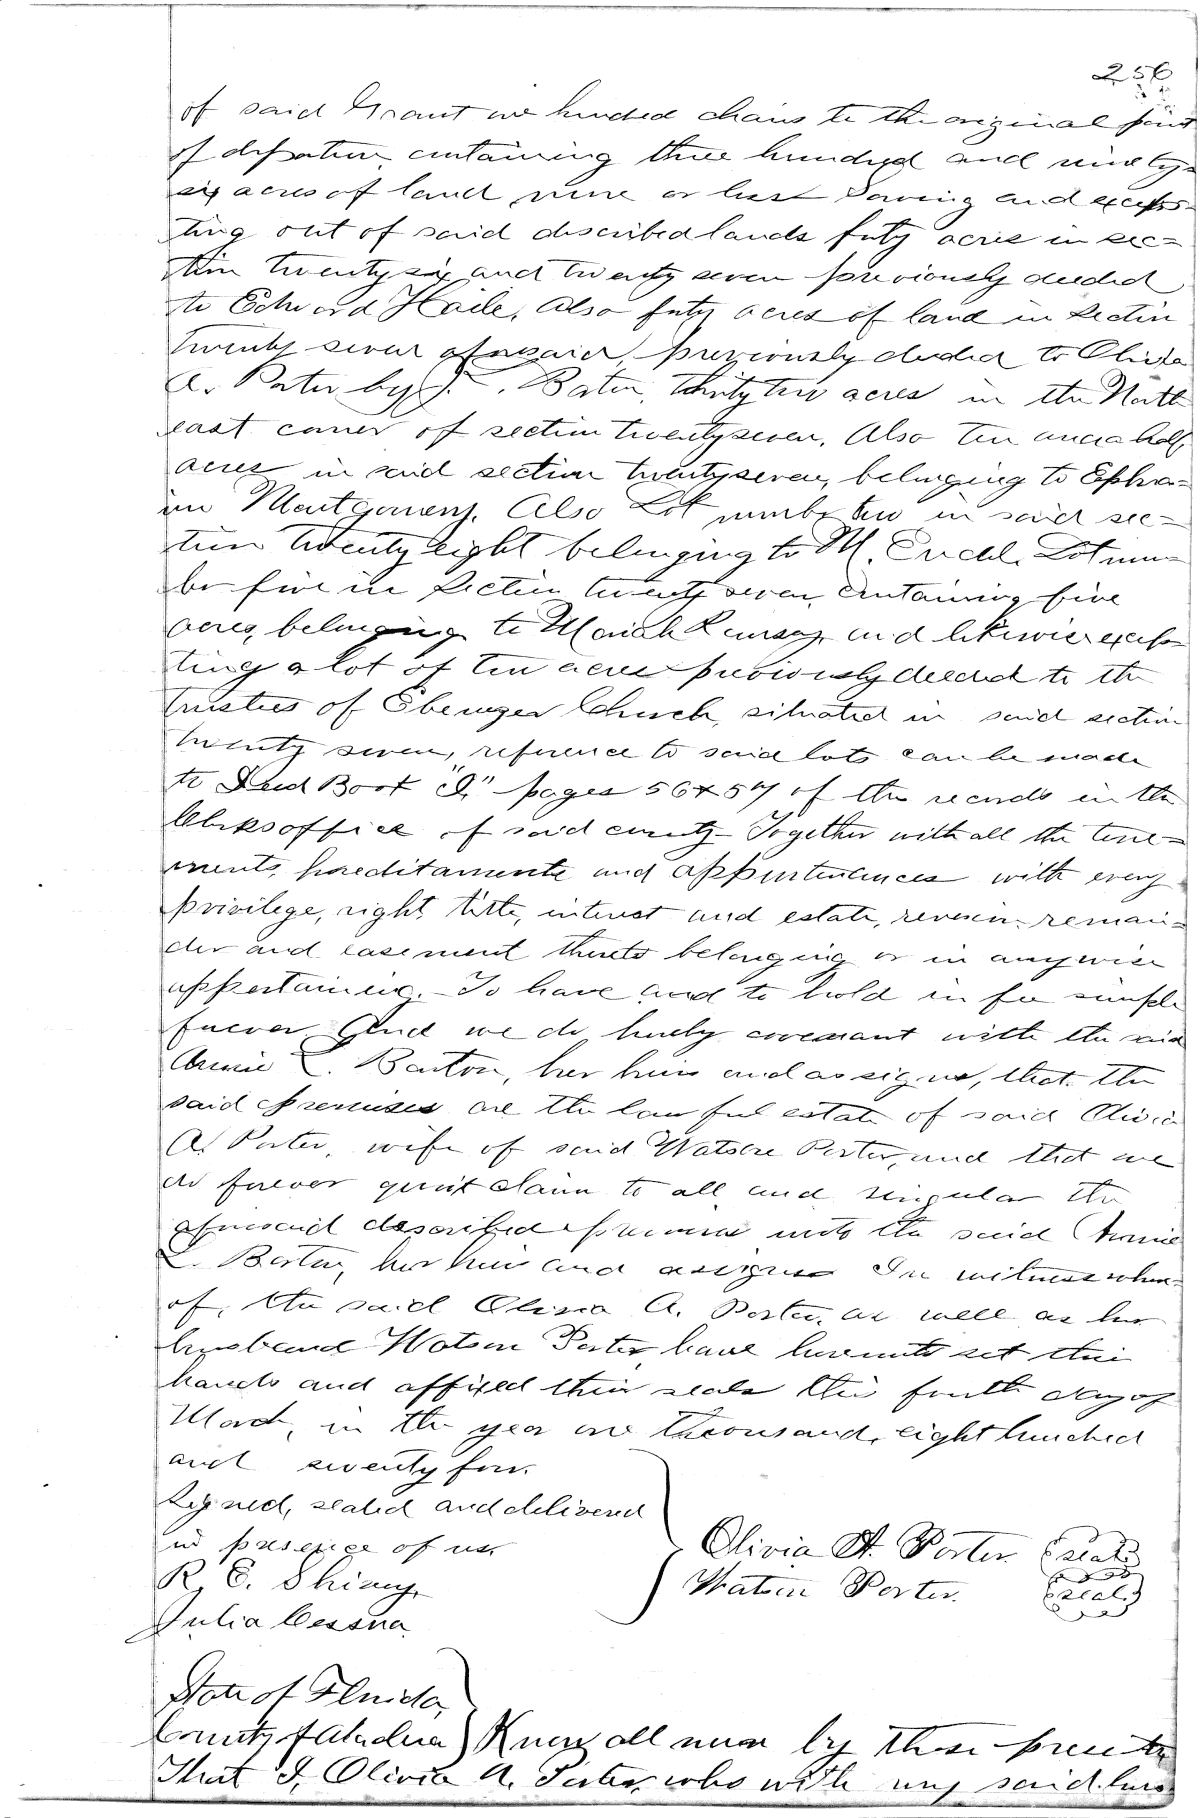 256
of said Grant one hundred chains to the original point
of departure, containing three hundred and ninety-
six acres of land more or less Saving and excep-
ting out of said described lands forty acres in sec=
tion twenty six and twenty seven previously deeded
to Edward Haile, Also forty acres of land in Section
twenty seven aforesaid, previously deeded to Olivia
A. Porter by J. . Barton, thirty two acres in the North
east corner of section twenty seven, Also ten and a half
acres in said section twenty seven, belonging to Ephra=
im Montgomery. Also Lot number two in said sec=
tion twenty eight belonging to M. Lot num=
ber five in Section twenty seven, containing five
acres, belonging to Moriah Ramsay and likewise excep
ting a lot of ten acres previously deeded to the
trustees of Ebenezer Church, situated in said section
twenty seven, reference to said lots can be made
to Deed Book " " pages 56 & 57 of the records in the
Clerks office of said county - Together with all the tene=
ments, hereditaments and appurtenances with every
privilege, right, title, interest and estate, reversion remain=
der and easement thereto belonging or in anywise
appertaining. - To have and to hold in fee simple
forever. And we do hereby covenant with the said
Annie L. Barton, her heirs and assigns, that the
said premises are the lawful estate of said Olivia
A. Porter, wife of said Watson Porter, and that we
do forever quit claim to all and singular the
aforesaid described premises unto the said Annie
L. Barton, her heirs and assigns In witness where-
of, the said Olivia A. Porter, as well as her
husband Watson Porter, have hereunto set their
hands and affixed their seals this fourth day of
March, in the year one thousand, eight hundred
and seventy four.
Signed, sealed and delivered
in presence of us.
R. E.
Julia Cessna
Olivia A. Porter. (seal)
Watson Porter. (seal)
State of Florida,
County of Alachua) Know all men by these presents
That I, Olivia A. Porter, who with my said hus